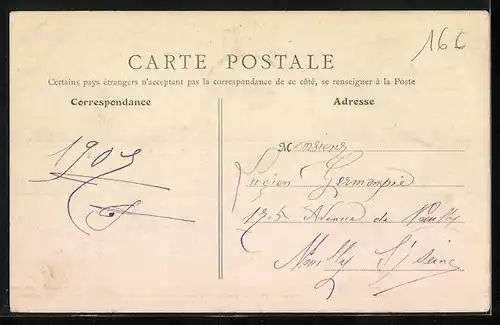 16C
CARTE POSTALE
Certains pays étrangers n'acceptant pas la correspondance de ce côté, se renseigner à la Poste
Correspondance
Adresse
1905
Monsieur
Lucien
Avenue de Neuilly
Neuilly s/ Seine